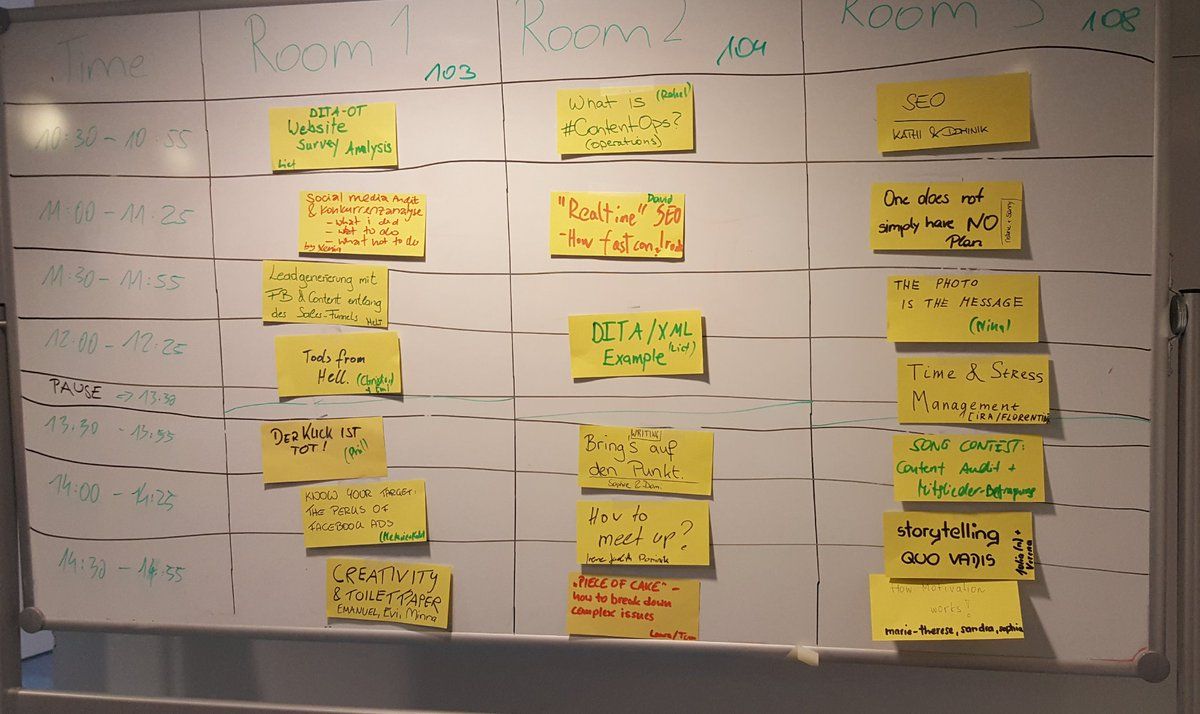 Time
Room 1
103
Room 2
104
Room 3
108
10:30 - 10:55
DITA-OT
Website
Survey Analysis
What is (Rahel)
#ContentOps?
(operations)
SEO
KATHI & DOMINIK
11:00 - 11:25
Social media Audit
& Konkurrenzanalyse
- what i did
- what to do
- what not to do
by Kevin
"Realtime" SEO
David
- How fast can I
One does not
simply have NO
Plan
11:30 - 11:55
Leadgenerierung mit
FB & Content entlang
des Sales-Funnels
THE PHOTO
IS THE MESSAGE
(Nina)
12:00 - 12:25
Tools from
Hell.
DITA/XML
Example
Time & Stress
Management
(IRA/FLORENTINE)
PAUSE => 13:30
13:30 - 13:55
DER KLICK IST
TOT!
(Phil)
WRITING
Bring's auf
den Punkt.
Sophie & Dom.
SONG CONTEST:
Content Audit +
Mitglieder-Befragung
14:00 - 14:25
KNOW YOUR TARGET:
THE PERKS OF
FACEBOOK ADS
How to
meet up?
Irene Judith Dominik
storytelling
QUO VADIS
Julia (n) +
Verena
14:30 - 14:55
CREATIVITY
& TOILETPAPER
EMANUEL, Evi, Minna
"PIECE OF CAKE" -
how to break down
complex issues
Laura/Tom
How Motivation
works!
marie-therese, sandra, sophia